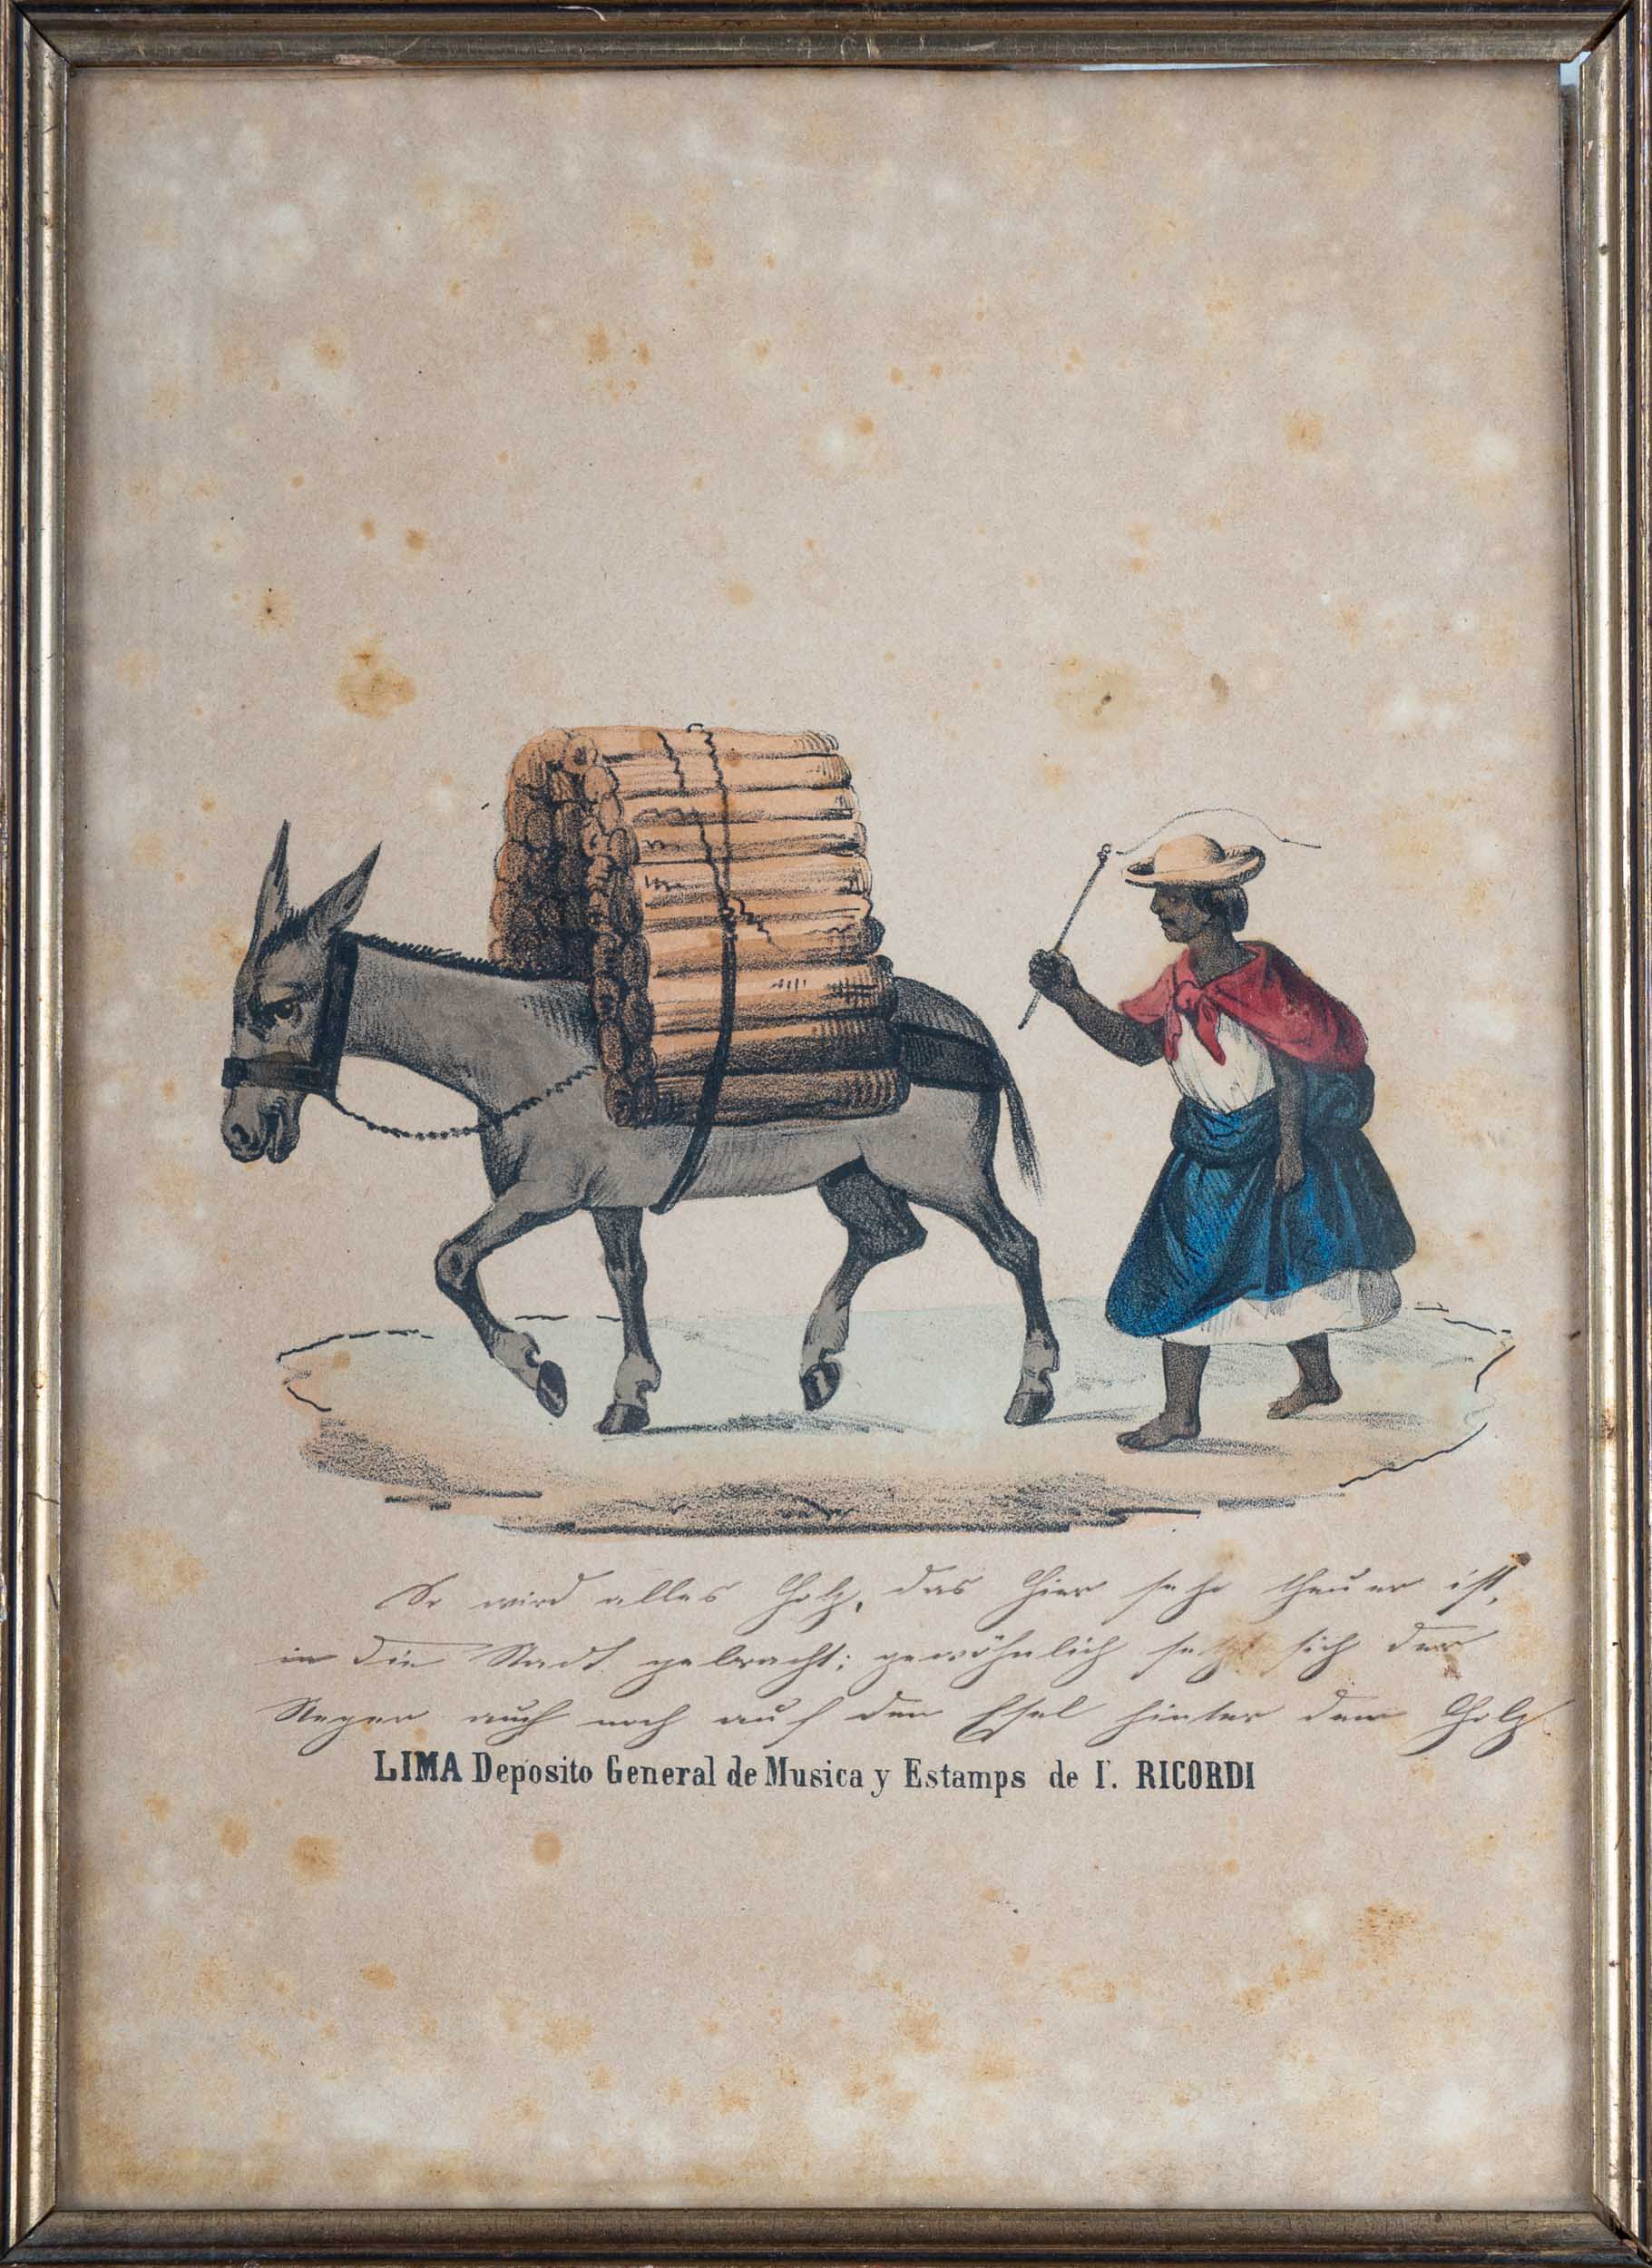 So wird alles Holz, das hier sehr theuer ist,
in die Stadt gebracht; gewöhnlich setzt sich der
Neger auch noch auf den Esel hinter dem Holz
LIMA Deposito General de Musica y Estamps de I. RICORDI